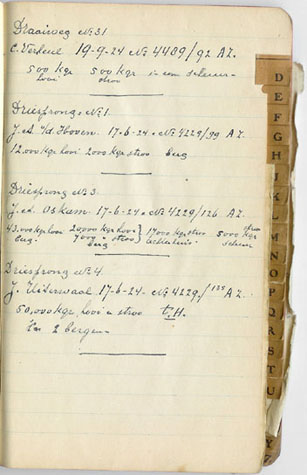 Draaiweg No 31
C. Verheul 19-9-24 No 4489/92 A.Z.
500 kgr hooi 500 kgr stroo in een schuur-
Driesprong No 1.
J. A. v/d Hoven 17-6-24. No 4229/99 A.Z.
12.000 kgr hooi 2000 kgr stroo berg
Driesprong No 3
J. A. Oskam 17-6-24. No 4229/126 A.Z.
43.000 kgr hooi 20,000 kgr hooi 17000 kgr stroo 5000 kgr stroo
berg. 7000 " stroo schuur
berg
Driesprong No 4.
J. Uiterwaal 17-6-24. No 4229/135 A.Z.
50,000 kgr hooi & stroo t.H.
In 2 bergen.
D
E
F
G
H
I
J
K
L
M
N
O
P
Q
R
S
T
U
Y
Z